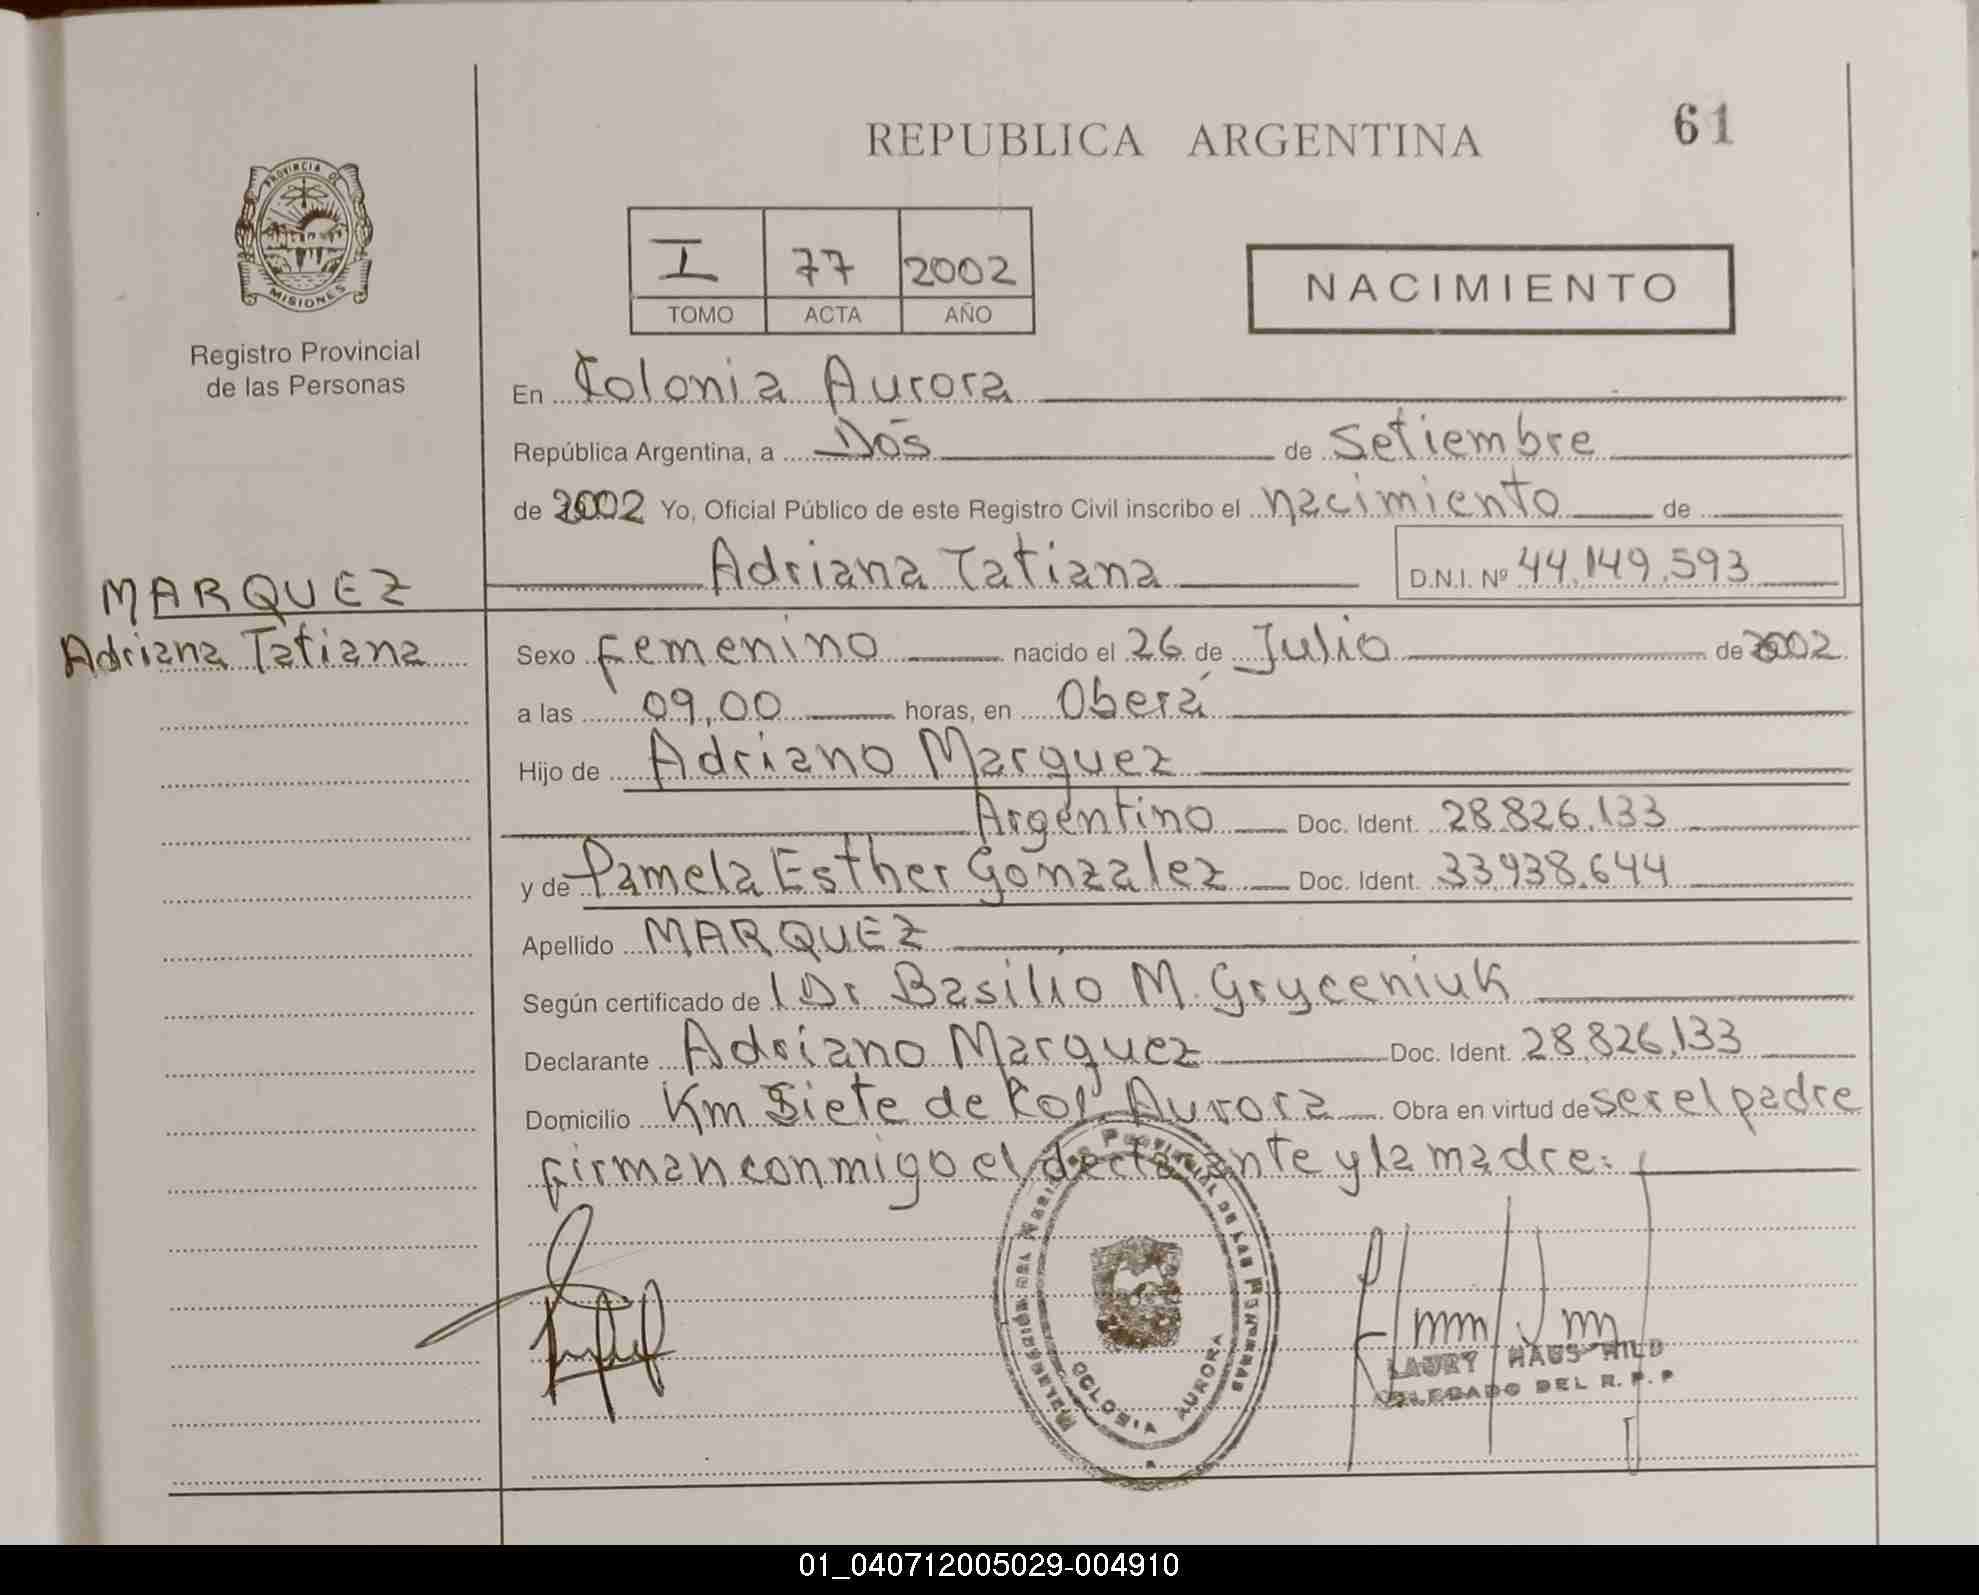 REPUBLICA ARGENTINA
61
PROVINCIA DE
MISIONES
Registro Provincial
de las Personas
I 77 2002
TOMO ACTA AÑO
NACIMIENTO
En Colonia Aurora
República Argentina, a Dos de Setiembre
de 2002 Yo, Oficial Público de este Registro Civil inscribo el nacimiento de
Adriana Tatiana D.N.I. Nº 44.149.593
MARQUEZ
Adriana Tatiana
Sexo Femenino nacido el 26 de Julio de 2002
a las 09,00 horas, en Oberá
Hijo de Adriano Marquez
Argentino Doc. Ident. 28.826.133
y de Pamela Esther Gonzalez Doc. Ident. 33.938.644
Apellido MARQUEZ
Según certificado de Dr Basilio M. Gryceniuk
Declarante Adriano Marquez Doc. Ident. 28.826.133
Domicilio Km Siete de Col Aurora Obra en virtud de ser el padre
firman conmigo el declarante y la madre.
PROVINCIAL DE LAS PERSONAS
COLONIA AURORA
LAURY HAUSHILD
DELEGADO DEL R. P. P
01_040712005029-004910